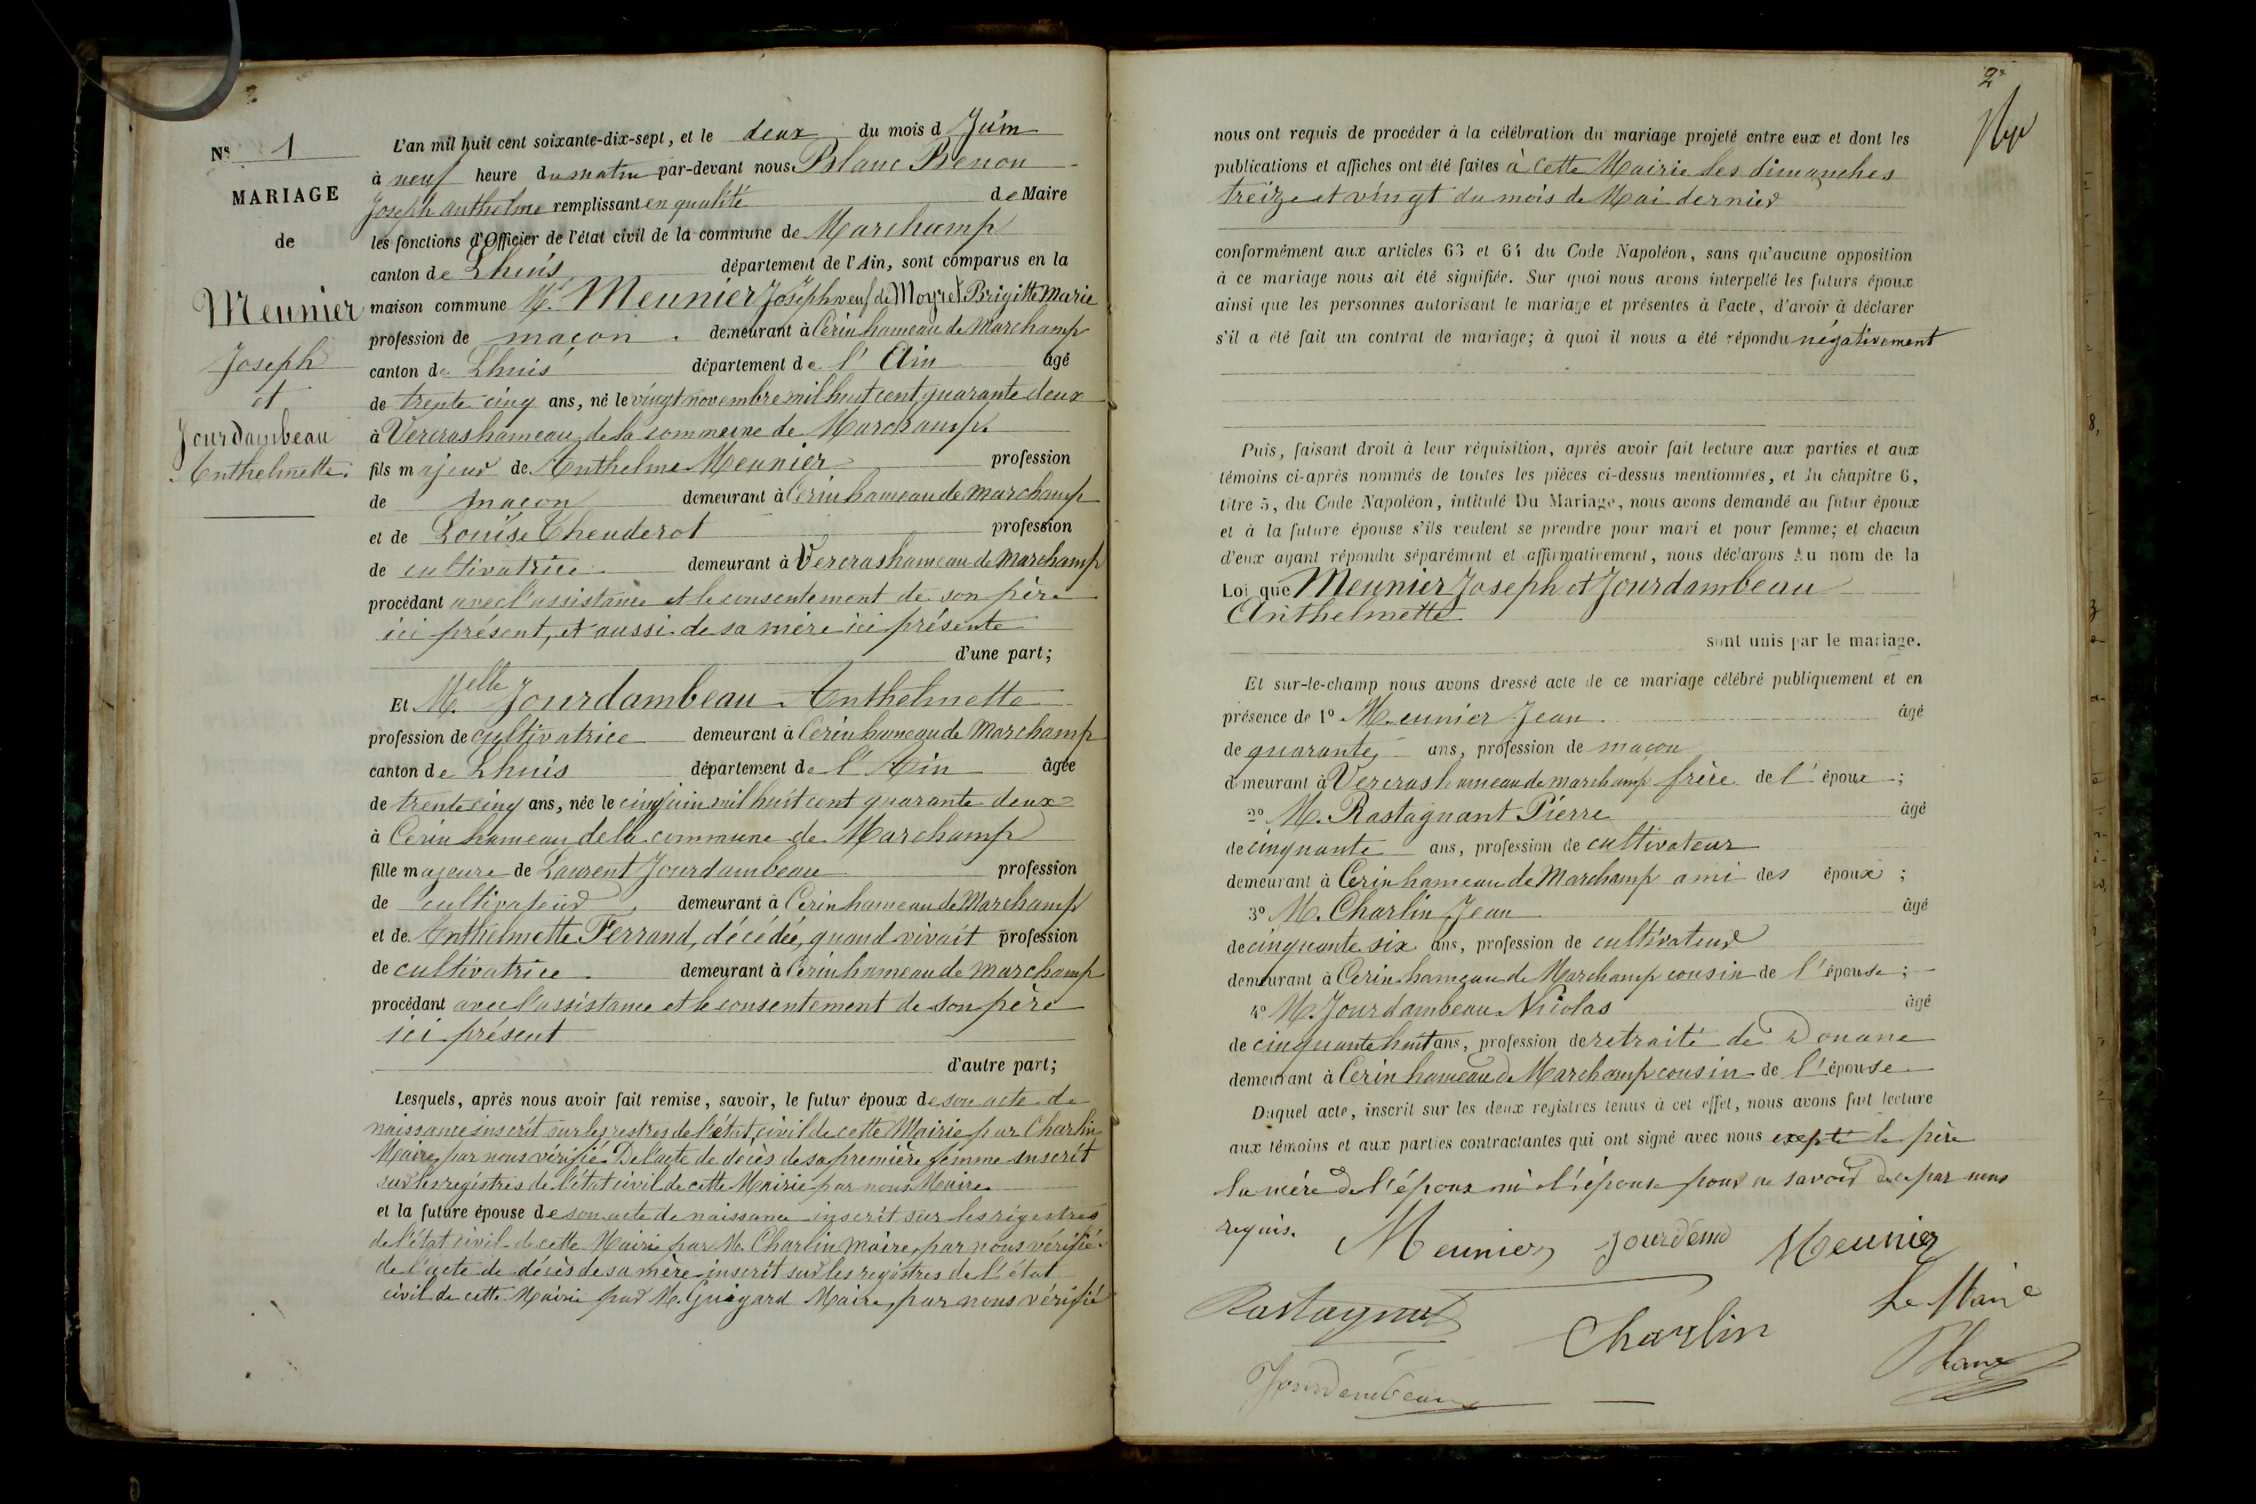 Nº 1
MARIAGE
de
Meunier
Joseph
et
Jourdambeau
Anthelmette
L'an mil huit cent soixante-dix-sept, et le deux du mois d Juin
à neuf heure du matin par-devant nous Blanc Benon
Joseph Anthelme remplissant en qualité de Maire
les fonctions d'Officier de l'état civil de la commune de Marchamp
canton de Lhuis département de l'Ain, sont comparus en la
maison commune Mr. Meunier Joseph veuf de Moyret Brigitte Marie
profession de maçon. demeurant à Cerin hameau de Marchamp
canton de Lhuis département de l'Ain âgé
de trente cinq ans, né le vingt novembre mil huit cent quarante deux
à Vercras hameau de la commune de Marchamp.
fils majeur de Anthelme Meunier profession
de maçon demeurant à Cerin hameau de Marchamp
et de Louise Chenderot profession
de cultivatrice demeurant à Vercras hameau de Marchamp
procédant avec l'assistance et le consentement de son père
ici présent, et aussi de sa mère ici présente
d'une part;
Et M.elle Jourdambeau Anthelmette
profession de cultivatrice demeurant à Cerin hameau de Marchamp
canton de Lhuis département de l'Ain âgée
de trente cinq ans, née le cinq juin mil huit cent quarante deux
à Cerin hameau de la commune de Marchamp
fille majeure de Laurent Jourdambeau profession
de cultivateur, demeurant à Cerin hameau de Marchamp
et de Anthelmette Ferrand, décédée, quand vivait profession
de cultivatrice demeurant à Cerin hameau de Marchamp
procédant avec l'assistance et le consentement de son père
ici présent
d'autre part;
Lesquels, après nous avoir fait remise, savoir, le futur époux de son acte de
naissance inscrit sur les restres de l'état civil de cette Mairie par Charlin
Maire, par nous vérifié. De l'acte de décès de sa première femme inscrit
sur les registres de l'état civil de cette Mairie par nous Maire
et la future épouse de son acte de naissance inscrit sur les régistres
de l'état civil de cette Mairie par M. Charlin maire, par nous vérifié.
de l'acte de décès de sa mère inscrit sur les registres de l'état
civil de cette Mairie par M. Guigard Maire, par nous vérifié
2e
nous ont requis de procéder à la célébration du mariage projeté entre eux et dont les
publications et affiches ont été faites à cette Mairie les dimanches
treize et vingt du mois de Mai dernier
conformément aux articles 63 et 64 du Code Napoléon, sans qu'aucune opposition
à ce mariage nous ait été signifiée. Sur quoi nous avons interpellé les futurs époux
ainsi que les personnes autorisant le mariage et présentes à l'acte, d'avoir à déclarer
s'il a été fait un contrat de mariage; à quoi il nous a été répondu négativement
Puis, faisant droit à leur réquisition, après avoir fait lecture aux parties et aux
témoins ci-après nommés de toutes les pièces ci-dessus mentionnées, et du chapitre 6,
titre 5, du Code Napoléon, intitulé Du Mariage, nous avons demandé au futur époux
et à la future épouse s'ils veulent se prendre pour mari et pour femme; et chacun
d'eux ayant répondu séparément et affirmativement, nous déclarons Au nom de la
Loi que Meunier Joseph et Jourdambeau
Anthelmette
sont unis par le mariage.
Et sur-le-champ nous avons dressé acte de ce mariage célébré publiquement et en
présence de 1º M. eunier Jean âgé
de quarante ans, profession de maçon
demeurant à Vercras hameau de marchamp frère de l'époux;
2º M. Rastagnant Pierre âgé
de cinquante ans, profession de cultivateur
demeurant à Cerin hameau de Marchamp ami des époux;
3º M. Charlin Jean âgé
de cinquante six ans, profession de cultivateur
demeurant à Cerin hameau de Marchamp cousin de l'épouse;
4º M. Jourdambeau Nicolas âgé
de cinquante huit ans, profession de retraité de Douane
demeurant à Cerin hameau de Marchamp cousin de l'épouse
Duquel acte, inscrit sur les deux registres tenus à cet effet, nous avons fait lecture
aux témoins et aux parties contractantes qui ont signé avec nous exepté le père
la mère de l'époux ni l'épouse pour ne savoir de ce par nous
requis.
Meunier Meunier
Rastagnat
Charlin Le Maire
Jourdambeau Blanc